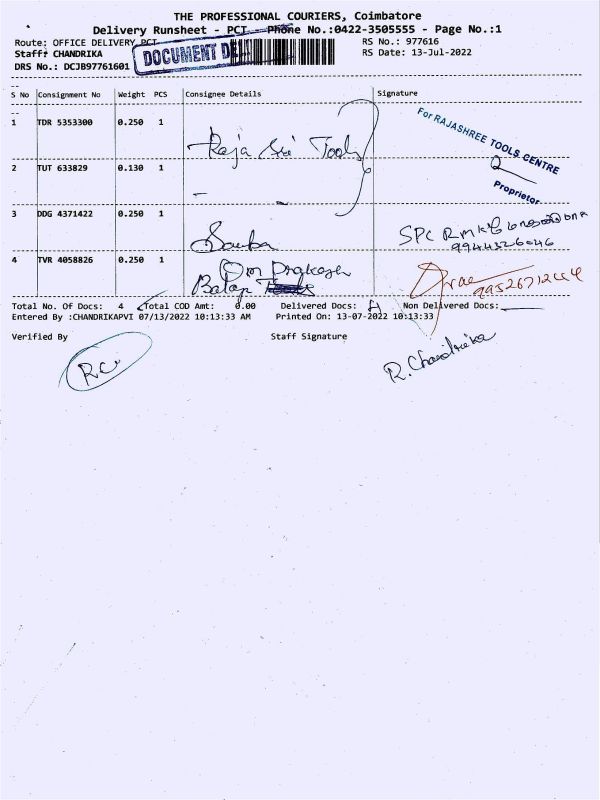 THE PROFESSIONAL COURIERS, Coimbatore
Delivery Runsheet - PCT Phone No.:0422-3505555 - Page No.:1
Route: OFFICE DELIVERY PCT
RS No.: 977616
Staff: CHANDRIKA
RS Date: 13-Jul-2022
DRS No.: DCJB97761601
DOCUMENT DE
S No Consignment No Weight PCS Consignee Details Signature
1 TDR 5353300 0.250 1 Raja Sri Tools
For RAJASHREE TOOLS CENTRE
Proprietor
2 TUT 633829 0.130 1
3 DDG 4371422 0.250 1
SPC
9944326046
4 TVR 4058826 0.250 1 Om Prakash
Balaji Tools
9952671244
Total No. Of Docs: 4 Total COD Amt: 0.00 Delivered Docs: 4 Non Delivered Docs:
Entered By :CHANDRIKAPVI 07/13/2022 10:13:33 AM Printed On: 13-07-2022 10:13:33
Verified By Staff Signature
RC
R. Chandrika